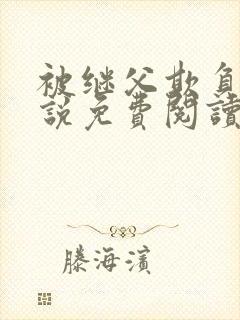 被继父欺负
說免費閱讀
滕海濱